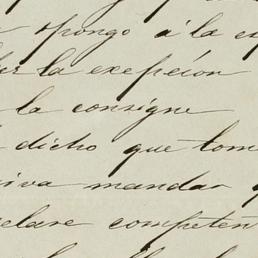 opongo á la es
la exepcion
la consigne
dicho que tom
iva mandar
clare competen